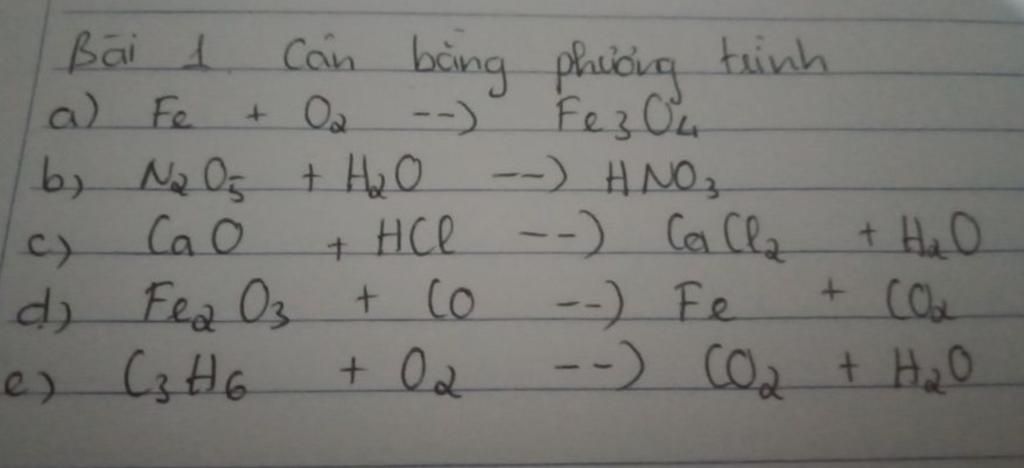 Bài 1. Cân bằng phương trình
a) Fe + O₂ --> Fe₃O₄
b) N₂O₅ + H₂O --> HNO₃
c) CaO + HCl --> CaCl₂ + H₂O
d) Fe₂O₃ + CO --> Fe + CO₂
e) C₃H₆ + O₂ --> CO₂ + H₂O